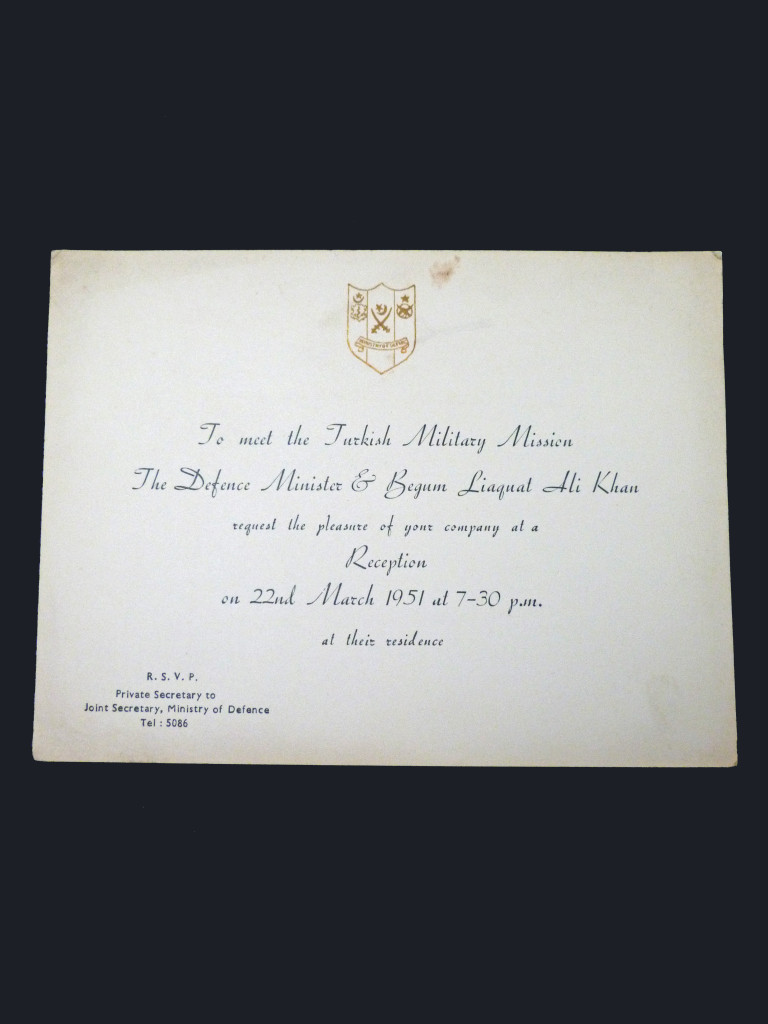 To meet the Turkish Military Mission
The Defence Minister & Begum Liaquat Ali Khan
request the pleasure of your company at a
Reception
on 22nd March 1951 at 7-30 p.m.
at their residence
R. S. V. P.
Private Secretary to
Joint Secretary, Ministry of Defence
Tel : 5086